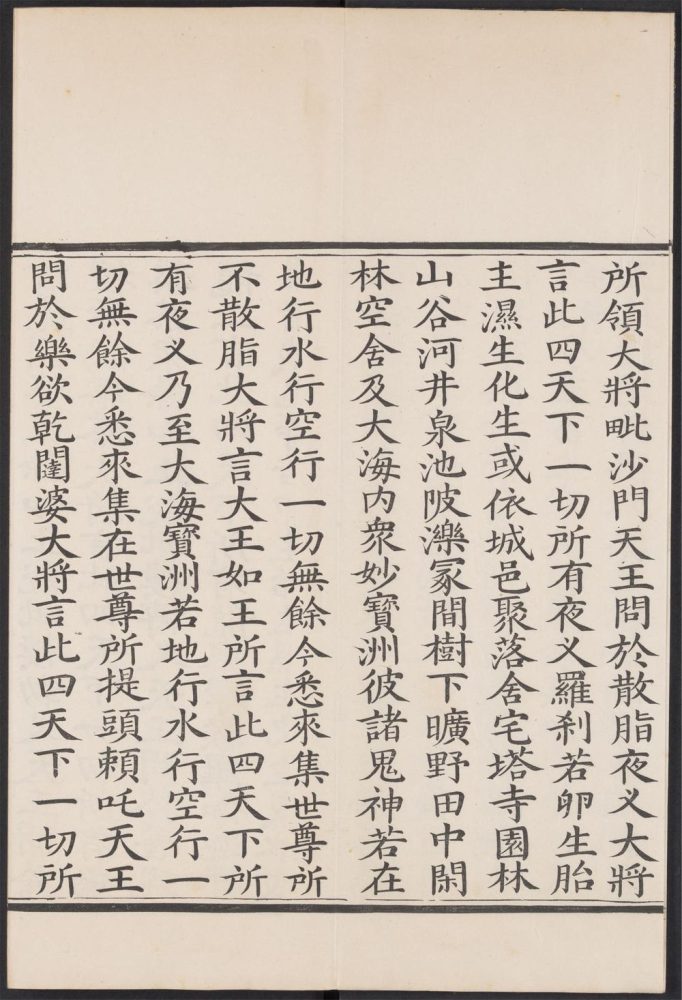 所領大將毗沙門天王問於散脂夜义大將
言此四天下一切所有夜义羅刹若卵生胎
主濕生化生或依城邑聚落舍宅塔寺園林
山谷河井泉池陂濼冢間樹下曠野田中閑
林空舍及大海内衆妙寶洲彼諸鬼神若在
地行水行空行一切無餘今悉來集世尊所
不散脂大將言大王如王所言此四天下所
有夜义乃至大海寶洲若地行水行空行一
切無餘今悉來集在世尊所提頭頼吒天王
問於樂欲乾闥婆大將言此四天下一切所